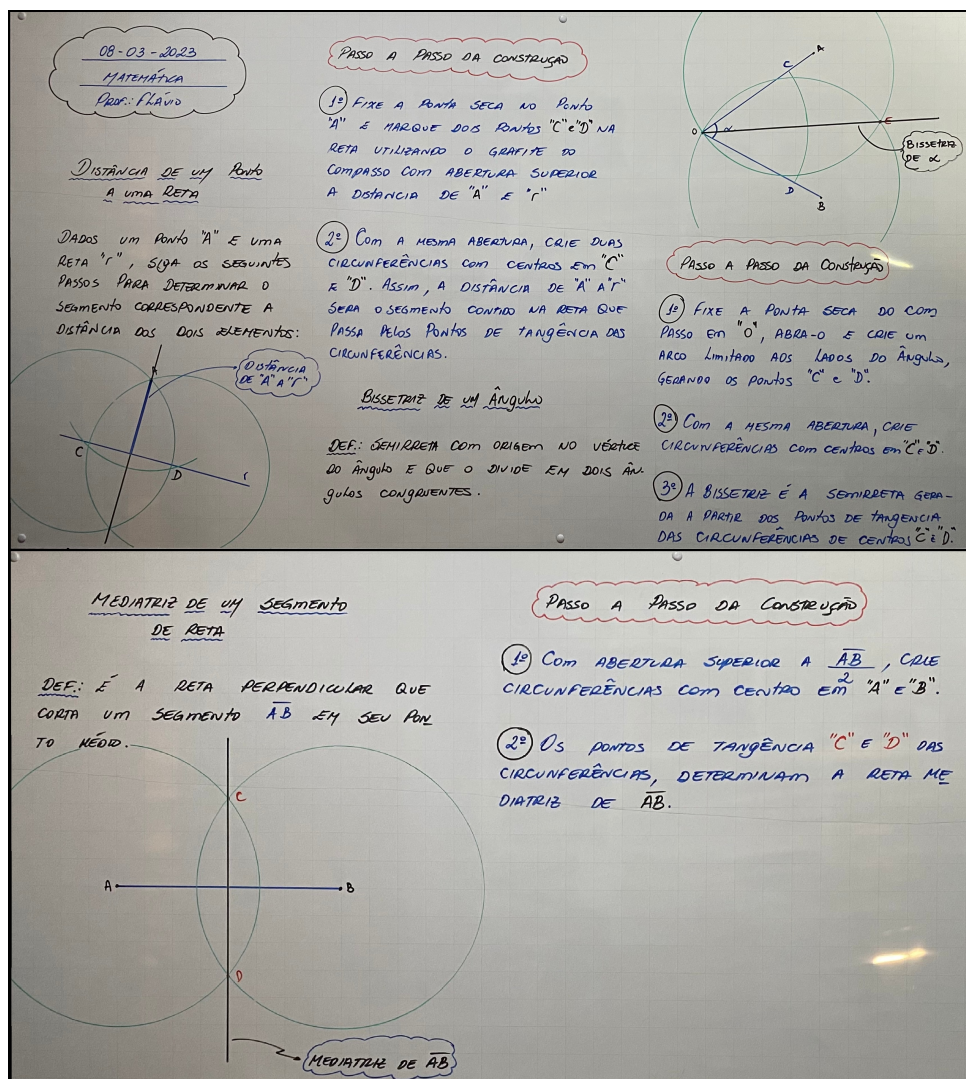 08-03-2023
MATEMÁTICA
PROF.: FLÁVIO
DISTÂNCIA DE UM PONTO
A UMA RETA
DADOS UM PONTO "A" E UMA
RETA "r", SIGA OS SEGUINTES
PASSOS PARA DETERMINAR O
SEGMENTO CORRESPONDENTE A
DISTÂNCIA DOS DOIS ELEMENTOS:
A
DISTÂNCIA
DE "A" A "r"
C
D
r
PASSO A PASSO DA CONSTRUÇÃO
1º FIXE A PONTA SECA NO PONTO
"A" E MARQUE DOIS PONTOS "C" e "D" NA
RETA UTILIZANDO O GRAFITE DO
COMPASSO COM ABERTURA SUPERIOR
A DISTANCIA DE "A" E "r"
2º COM A MESMA ABERTURA, CRIE DUAS
CIRCUNFERÊNCIAS COM CENTROS EM "C"
E "D". ASSIM, A DISTÂNCIA DE "A" A "r"
SERA O SEGMENTO CONTIDO NA RETA QUE
PASSA PELOS PONTOS DE TANGÊNCIA DAS
CIRCUNFERÊNCIAS.
BISSETRIZ DE UM ÂNGULO
DEF.: SEMIRRETA COM ORIGEM NO VÉRTICE
DO ÂNGULO E QUE O DIVIDE EM DOIS ÂN-
GULOS CONGRUENTES.
A
C
O
α
E
BISSETRIZ
DE α
D
B
PASSO A PASSO DA CONSTRUÇÃO
1º FIXE A PONTA SECA DO COM
PASSO EM "O", ABRA-O E CRIE UM
ARCO LIMITADO AOS LADOS DO ÂNGULO,
GERANDO OS PONTOS "C" E "D".
2º COM A MESMA ABERTURA, CRIE
CIRCUNFERÊNCIAS COM CENTROS EM "C" E "D".
3º A BISSETRIZ É A SEMIRRETA GERA-
DA A PARTIR DOS PONTOS DE TANGENCIA
DAS CIRCUNFERÊNCIAS DE CENTROS "C" E "D".
MEDIATRIZ DE UM SEGMENTO
DE RETA
DEF.: É A RETA PERPENDICULAR QUE
CORTA UM SEGMENTO AB EM SEU PON
TO MÉDIO.
C
A
B
D
MEDIATRIZ DE AB
PASSO A PASSO DA CONSTRUÇÃO
1º COM ABERTURA SUPERIOR A AB/2, CRIE
CIRCUNFERÊNCIAS COM CENTRO EM "A" E "B".
2º OS PONTOS DE TANGÊNCIA "C" E "D" DAS
CIRCUNFERÊNCIAS, DETERMINAM A RETA ME
DIATRIZ DE AB.